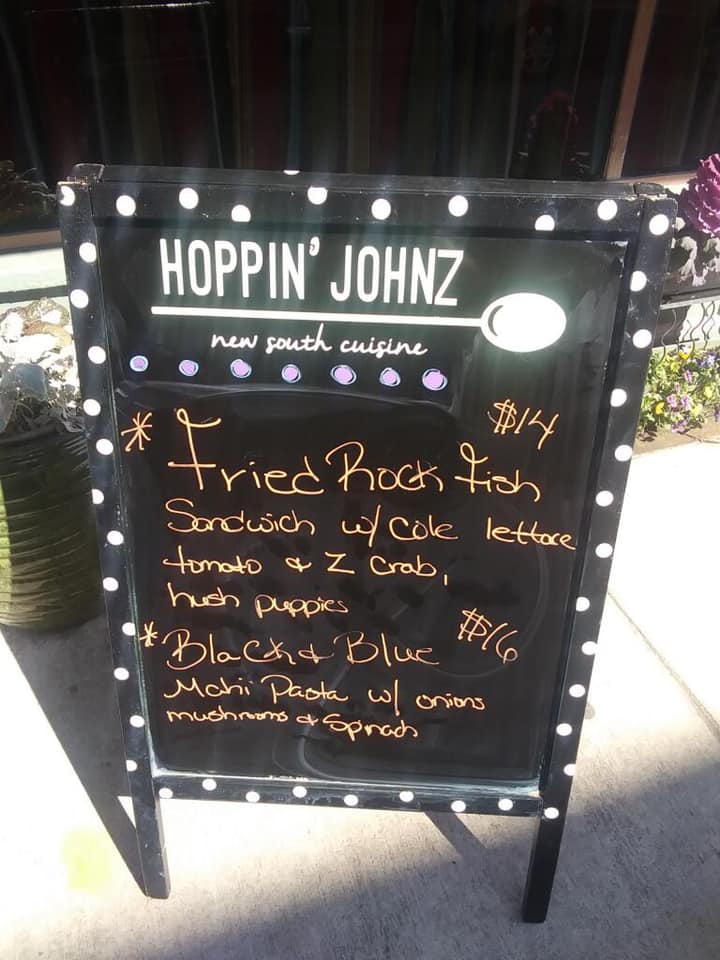 HOPPIN' JOHNZ
new south cuisine
$14
* Fried Rock Fish
Sandwich w/ Cole lettace
tomato & 2 Crab,
hush puppies
$16
* Black & Blue
Mahi Pasta w/ onions
mushrooms & Spinach